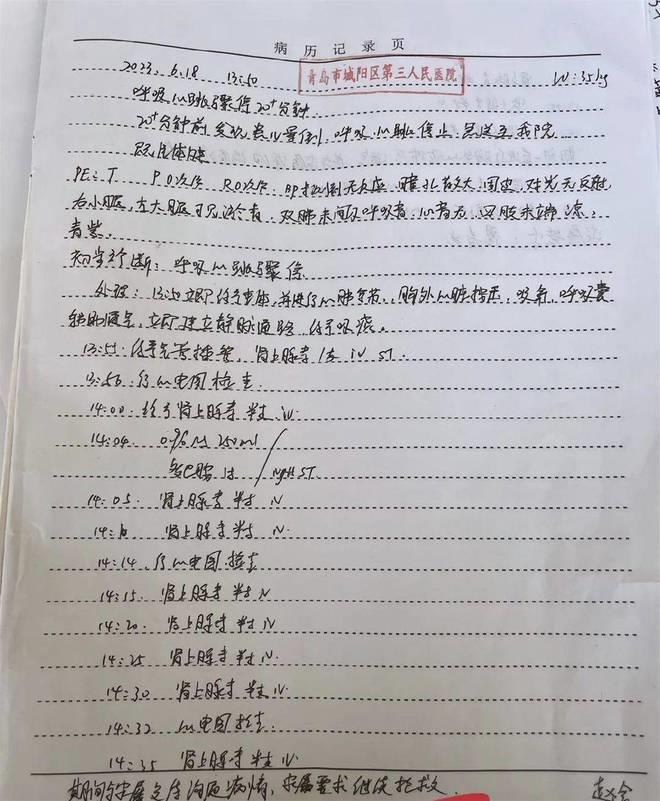 病历记录页
2023.6.18 13:50 青岛市城阳区第三人民医院 W:35kg
呼吸心跳骤停20+分钟
20+分钟前发现患儿晕倒,呼吸、心跳停止,急送至我院
既往体健
PE: T P 0次/分 R 0次/分 BP 无反应,瞳孔散大,固定,对光无反射,
右小腿,左大腿可见淤青,双肺未闻及呼吸音,心音无,四肢末端凉,
青紫。
初步诊断:呼吸心跳骤停
处理:立即 并进行心肺复苏,胸外心脏按压,吸氧,呼吸囊
辅助通气,立即建立静脉通路,
13:55. 气管插管,肾上腺素 iv ST.
13:56. 行心电图检查.
14:00. 给予肾上腺素 半支 iv.
14:04. 0.9% NS 250ml
多巴胺 ivgtt ST.
14:05. 肾上腺素 半支 iv
14:10 肾上腺素 半支 iv.
14:14. 行心电图检查
14:15. 肾上腺素 半支 iv
14:20. 肾上腺素 半支 iv
14:25 肾上腺素 半支 iv.
14:30 肾上腺素 半支 iv.
14:32 心电图检查.
14:35 肾上腺素 半支 iv.
期间与家属交待沟通病情,家属要求继续抢救.